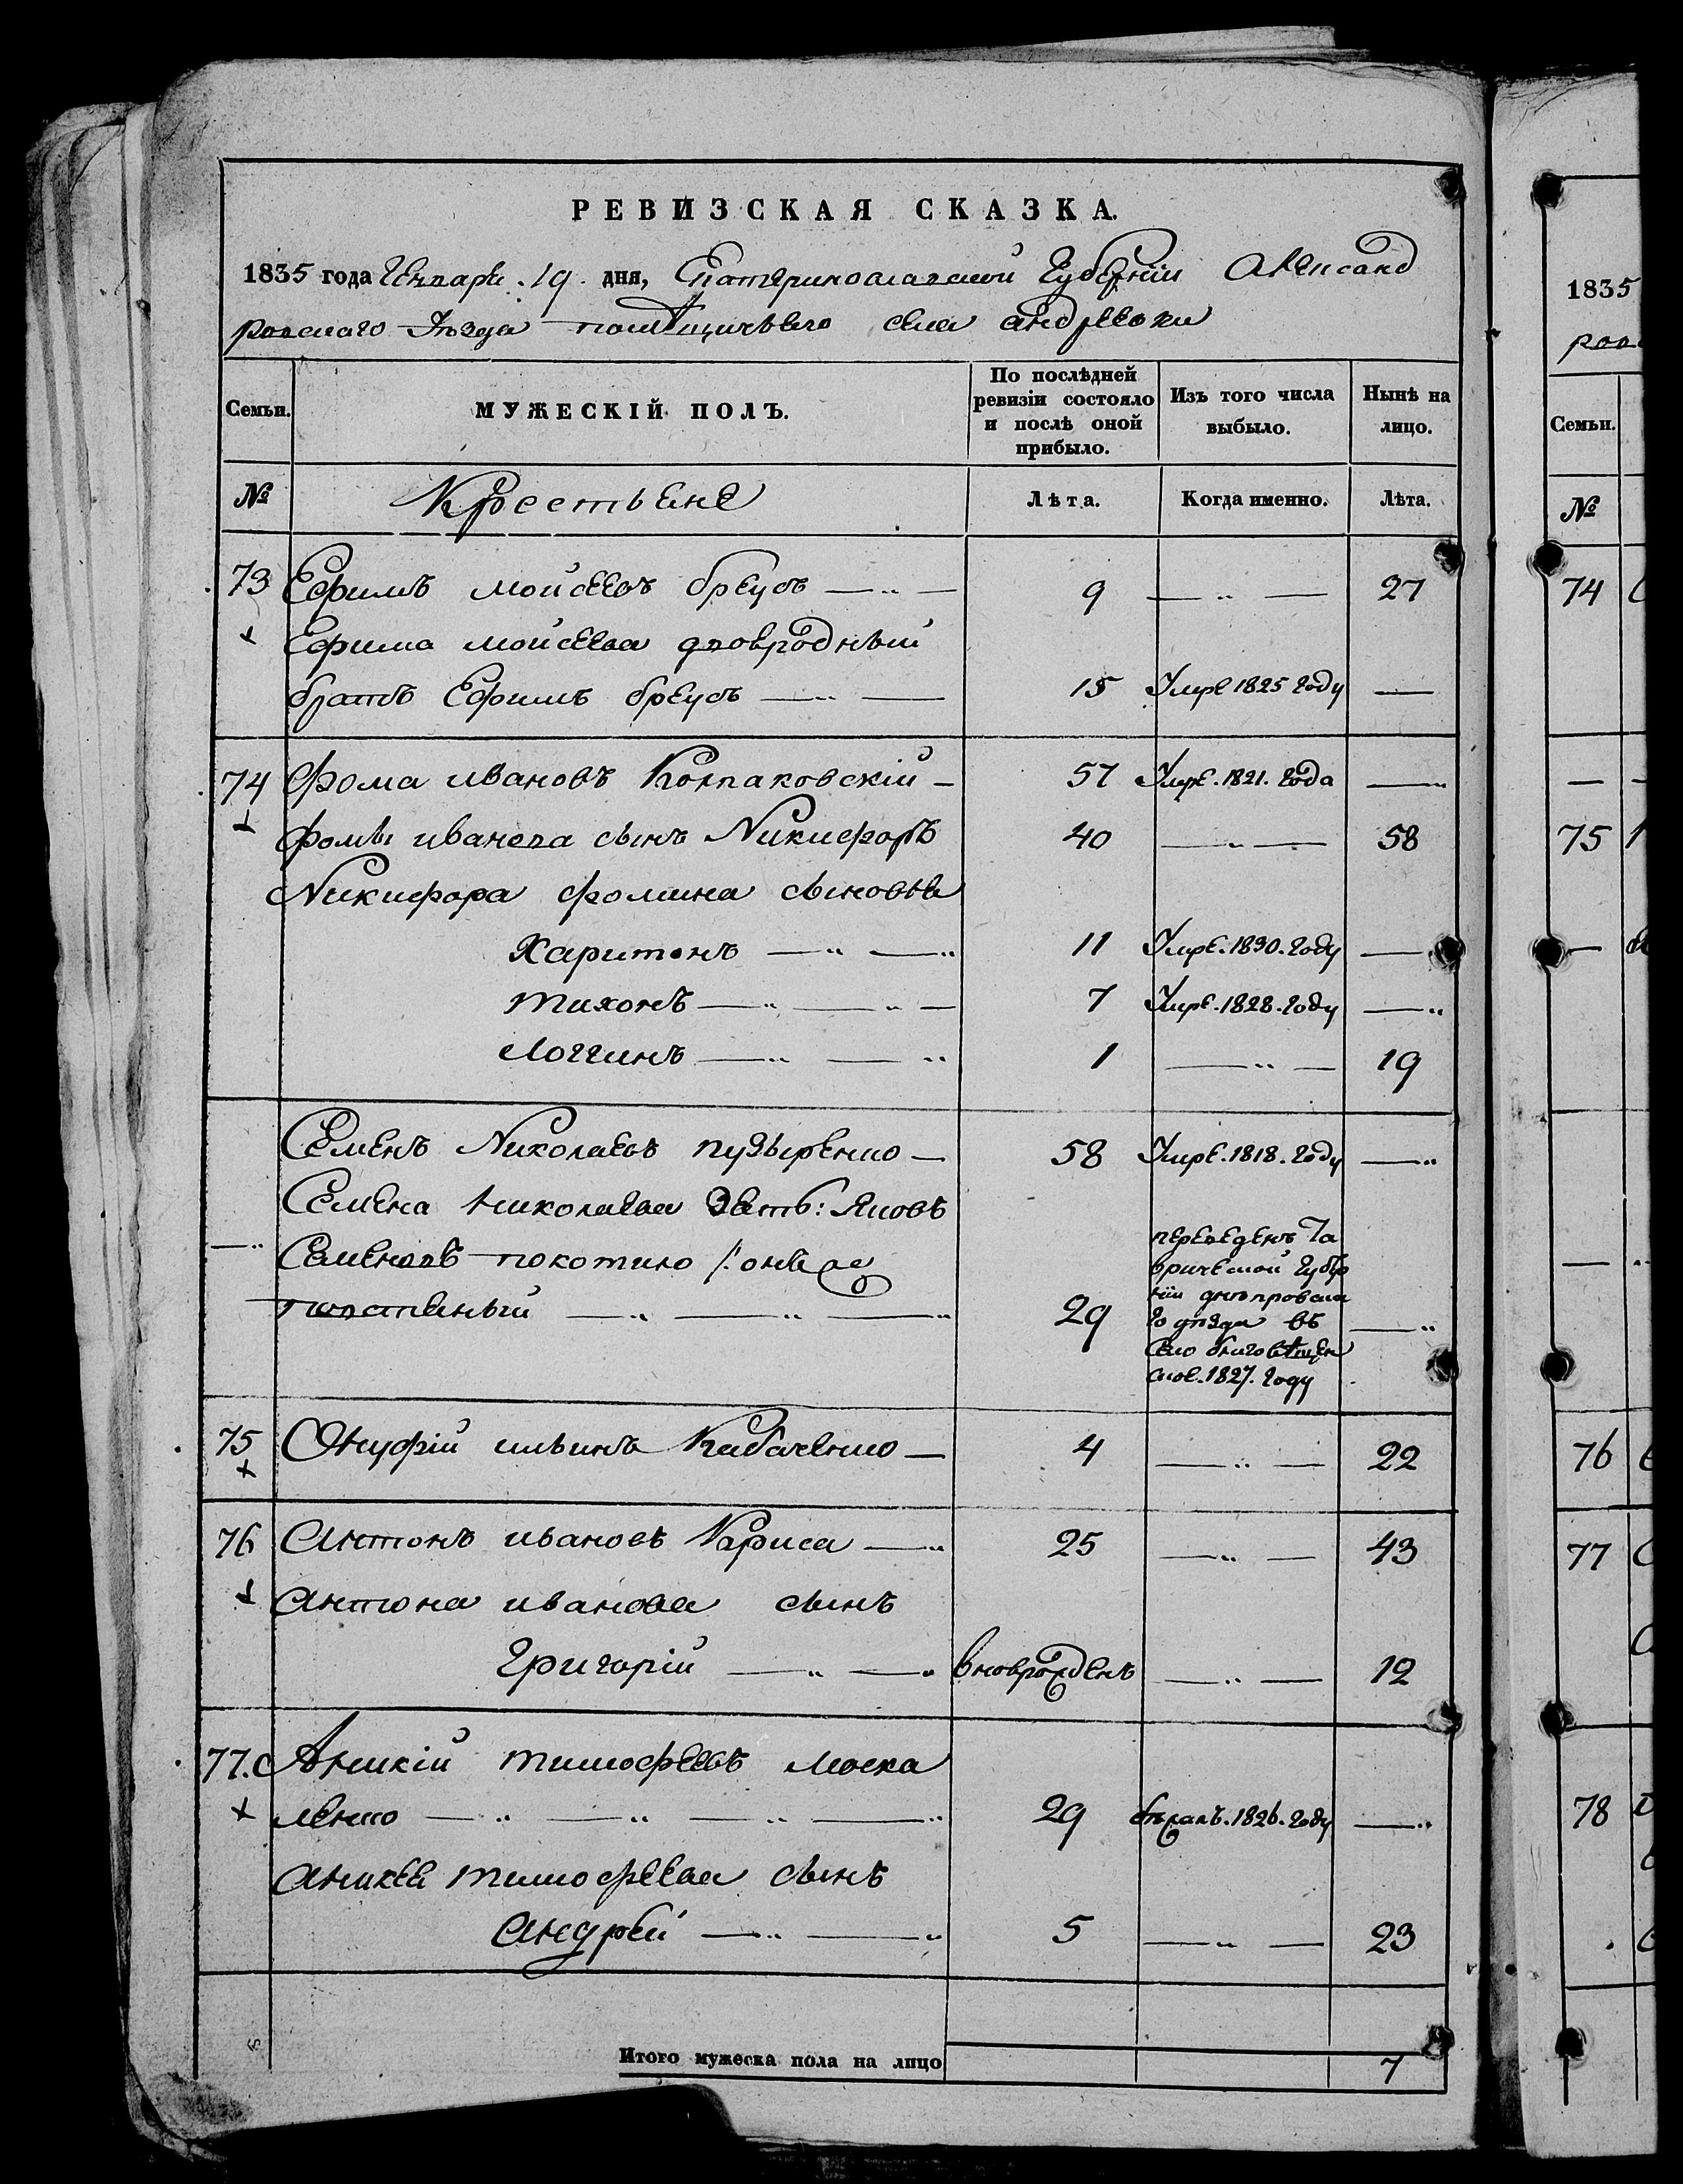 РЕВИЗСКАЯ СКАЗКА.
1835 года Генваря 19 дня, Екатеринославской Губернiи Александ
ровскаго Уѣзда помѣщичьяго села андреевки
Семьи.
МУЖЕСКІЙ ПОЛЪ.
По послѣдней ревизіи состояло и послѣ оной прибыло.
Изъ того числа выбыло.
Нынѣ на лицо.
№
Крестьяне
Лѣта.
Когда именно.
Лѣта.
73 Ефимъ мойсеевъ бреусъ — 9 — 27
Ефима мойсеева двоврodный
братъ Ефимъ бреусъ — 15 Умре 1825 году —
74 Фома ивановъ Колпаковскій — 57 Умре. 1821. года —
фомы иванова сынъ Никифоръ 40 — 58
Никифора фомина сыновья
Харитонъ — 11 Умре. 1830. году —
тихонъ — 7 Умре. 1828. году —
Логгинъ — 1 — 19
Семенъ Николаевъ пузыренко — 58 Умре. 1818. году —
Семена Николаева зять: Яковъ
Семеновъ покотило /: онъ
— 29 переведенъ Та
врической губер
нiи днѣпровска
го уѣзда въ
село благовѣщен
ское. 1827. году —
75 Онуфрій ильинъ Кабаченко — 4 — 22
76 Антонъ ивановъ Кариса — 25 — 43
антона иванова сынъ
Григорій — вновьрожденъ — 12
77. Аникій тимофеевъ моска
ленко — 29 бѣжалъ. 1826. году —
аникея тимофеева сынъ
андрей — 5 — 23
Итого мужеска пола на лицо 7
1835
ров
Семьи.
№
74
75
76
77
78